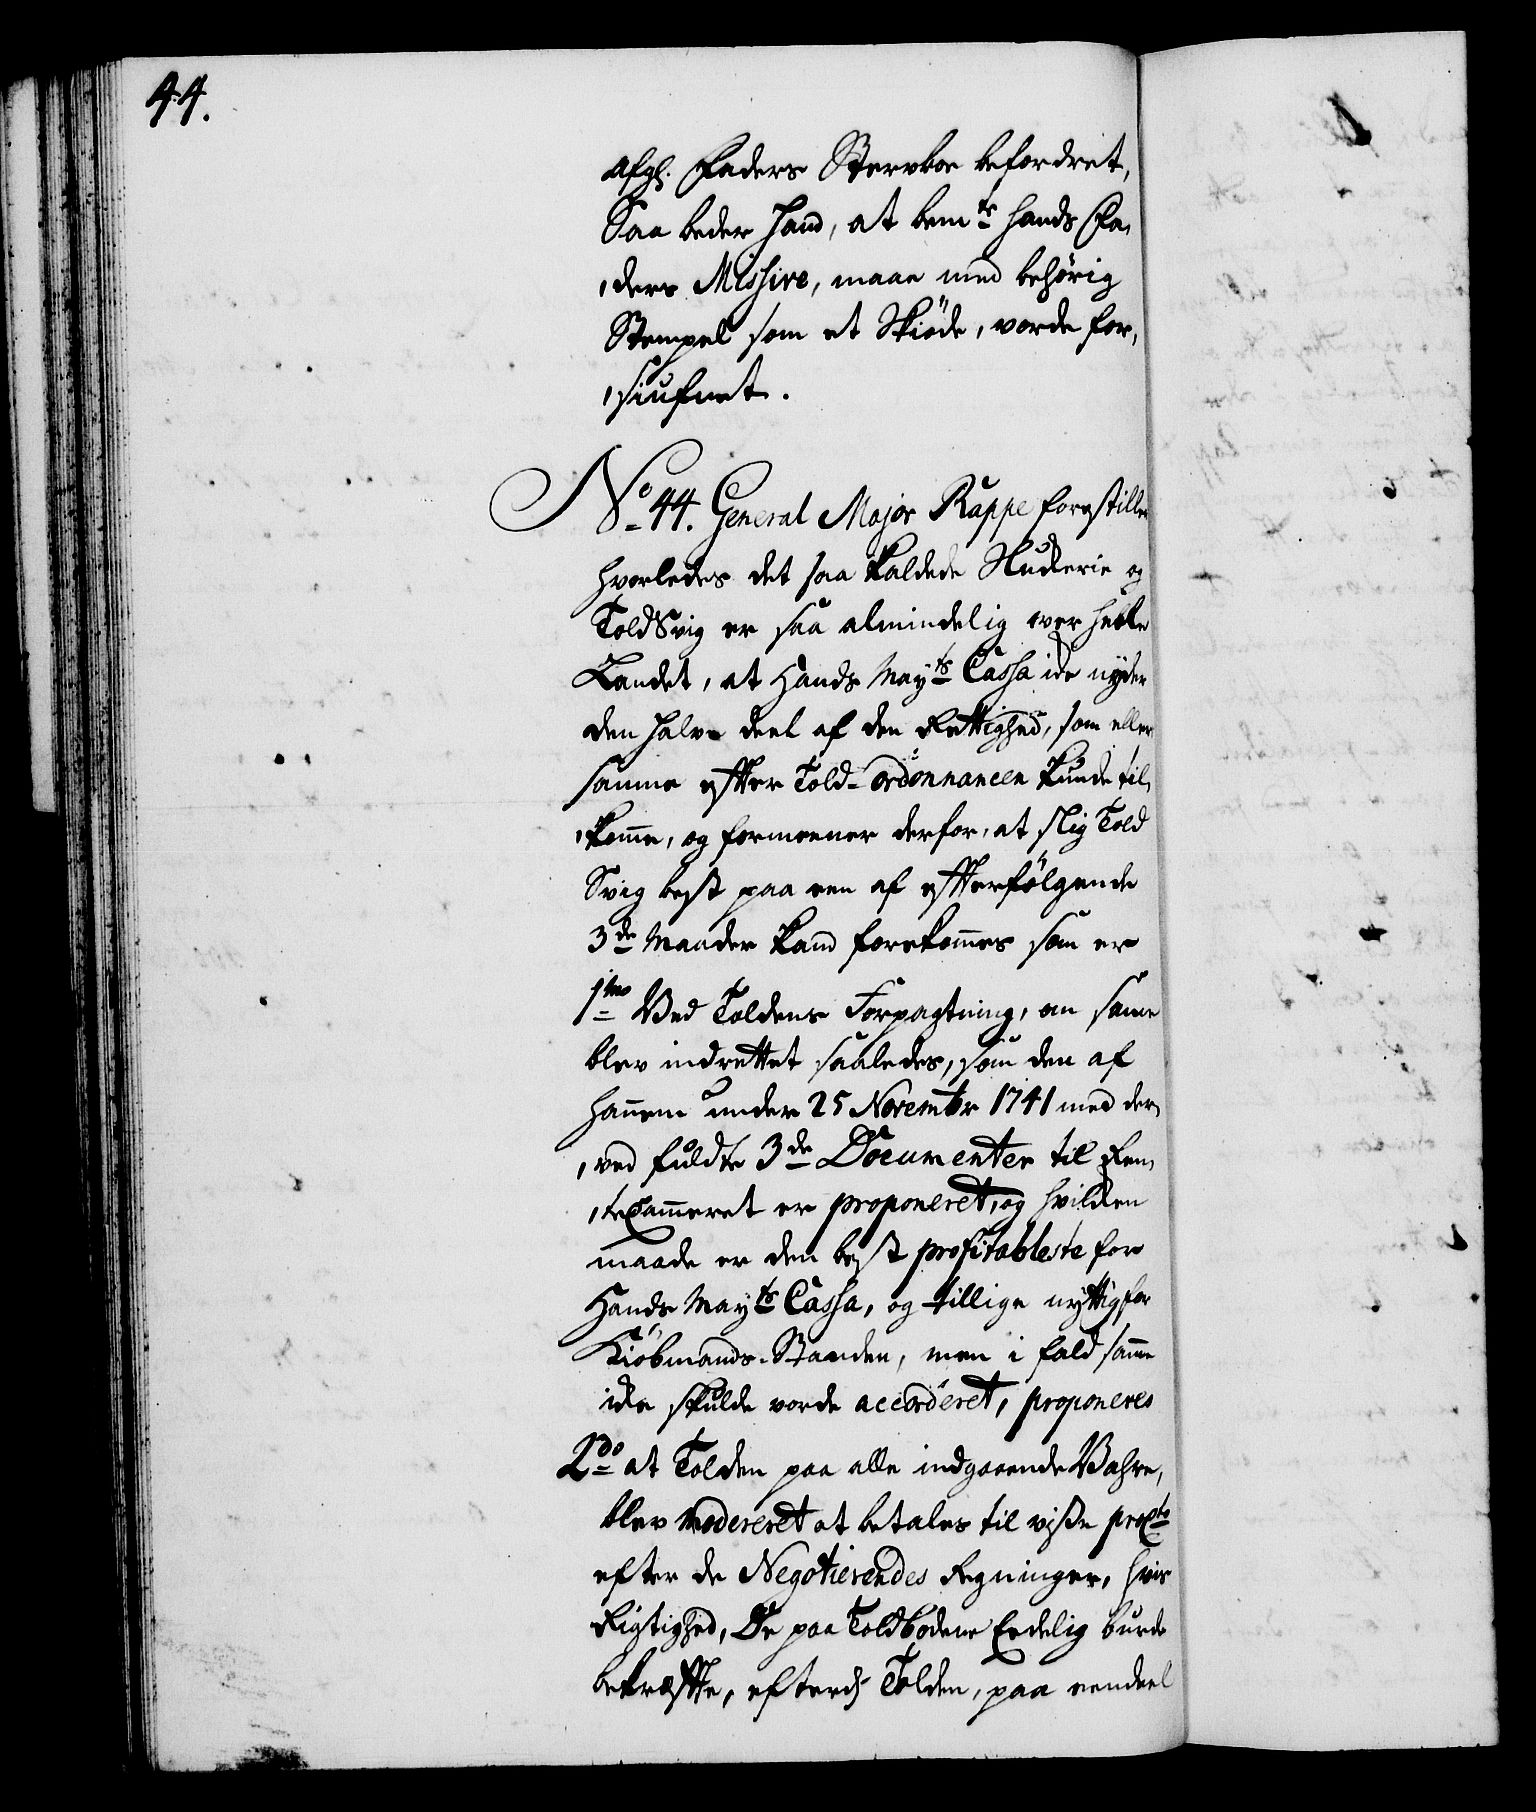 44.
Afgl. Faders Stervboe befordret,
Saa beder hand, at bemte hands Fa,
,ders Missive, maae med behörig
Stempel som et Skiöde, vorde for,
,siufnet.
No 44. General Major Rappe forestiller
hvorledes det saa kaldede Sluderie og
Told Svig er saa almindelig over heele
Landet, at Hands Mayts Cassa ide nyder
den halve deel af den Rettighed, som eller
samme efter Told-ordonnancen kunde til,
,komme, og formeener derfor, at slig Told
Svig best paa een af efterfölgende
3de Maader kand forekommes som er
1mo Ved Toldens Forpagtning, om samme
blev indrettet saaledes, som den af
hannem under 25 Novembr 1741 med der,
,ved fuldte 3de Documenter til Ren,
,teCammeret er proponeret, og hvilken
maade er den best profitableste for
Hands Mayts Cassa, og tillige nyttig for
Kiöbmands-Standen, men i fald samme
ide skulde vorde accorderet, proponeres
2do at Tolden paa alle indgaaende Vahre,
blev modereret at betales til visse proCto
efter de Negotierendes Regninger, hvis
Rigtighed, De paa Toldboderne Eedelig burde
bekræfte, efterdj Tolden, paa eendeel